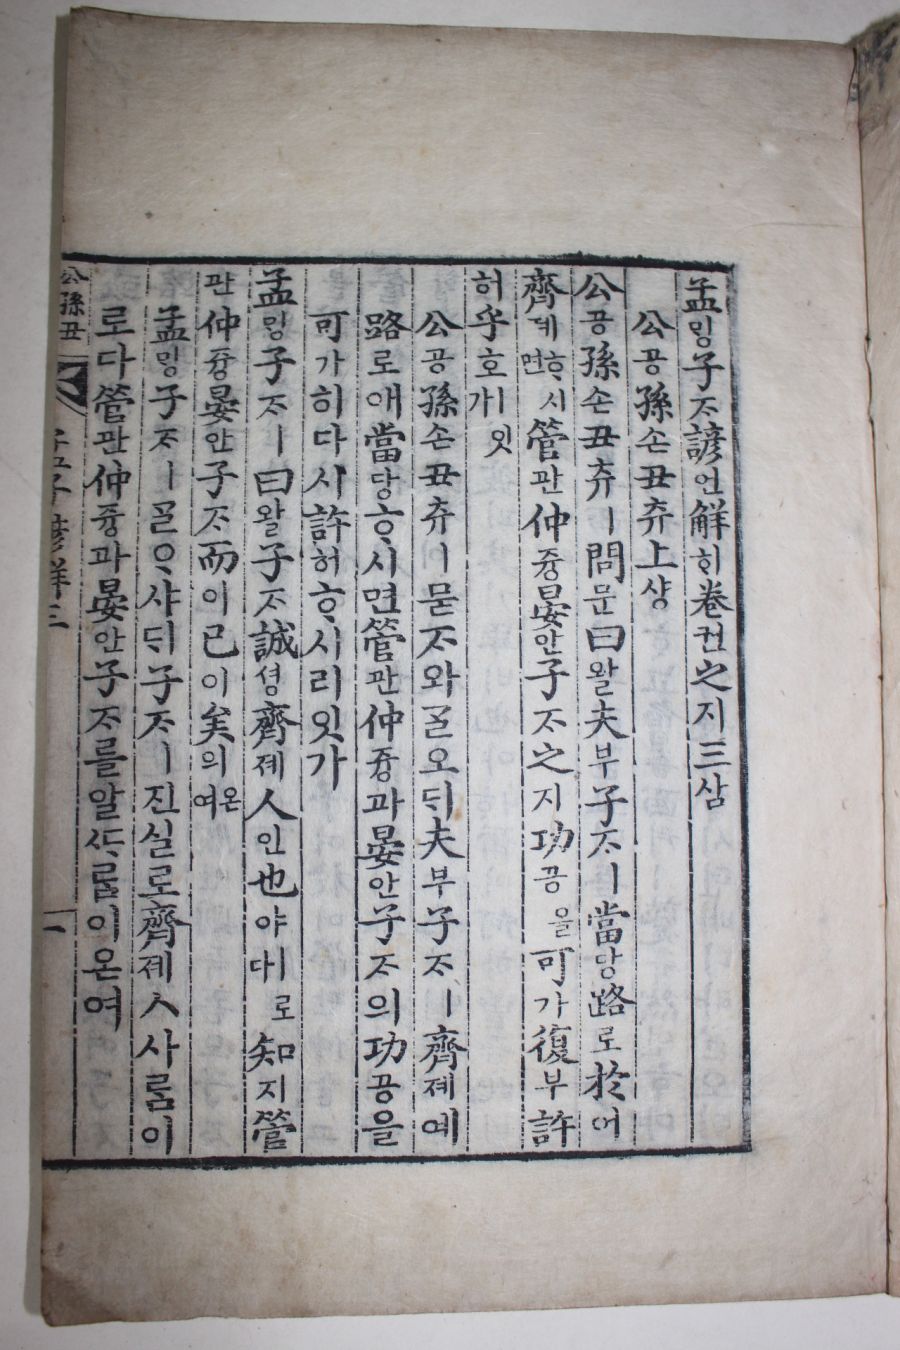 孟ᄆᆡᆼ子ᄌᆞ諺언解ᄒᆡ卷권之지三삼
公공孫손丑츄上샹
公공孫손丑츄ㅣ問문曰왈夫부子ᄌᆞㅣ當당路로於어
齊졔ᄒᆞ시면管관仲듕晏안子ᄌᆞ之지功공을可가復부許
허乎호ᄋᆡᆺ가
公공孫손丑츄ㅣ묻ᄌᆞ와ᄀᆞᆯ오ᄃᆡ夫부子ᄌᆞㅣ齊졔예
路로애當당ᄒᆞ시면管관仲듕과晏안子ᄌᆞ의功공을
可가히다시許허ᄒᆞ시리잇가
孟ᄆᆡᆼ子ᄌᆞㅣ曰왈子ᄌᆞ誠셩齊졔人인也야ㅣ로다知지管
관仲듕晏안子ᄌᆞ而이已이矣의온여
孟ᄆᆡᆼ子ᄌᆞㅣᄀᆞᆯᄋᆞ샤ᄃᆡ子ᄌᆞㅣ진실로齊졔ㅅ사ᄅᆞᆷ이
로다管관仲듕과晏안子ᄌᆞ를알ᄯᆞᄅᆞᆷ이온여
公孫丑
孟子諺解三
一